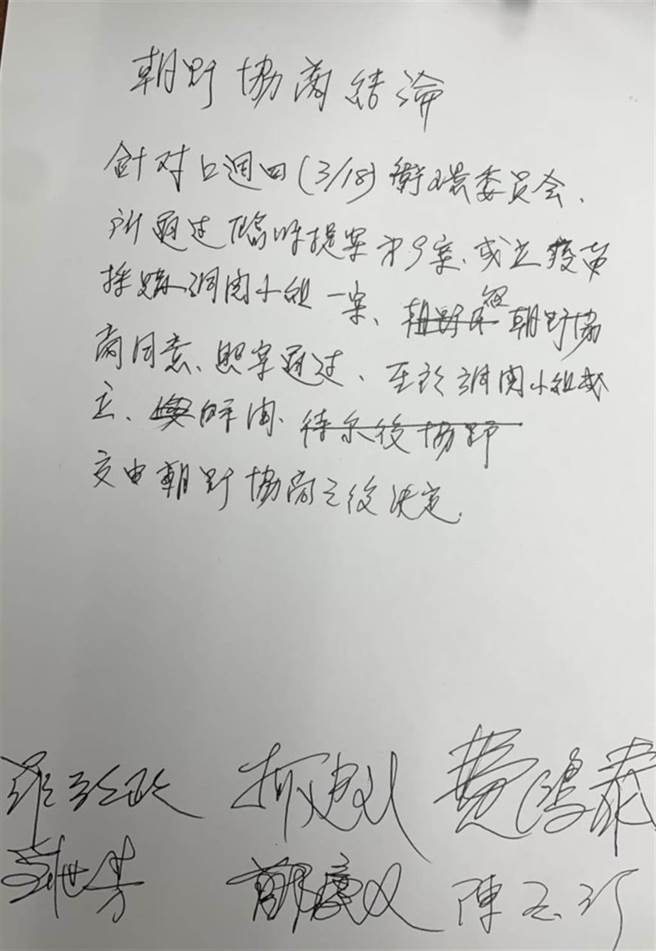 朝野協商結論
針对上週四(3/18)衛環委員会、
所通过臨時提案第9案、成立疫苗
採購調閱小組一案、朝野 經朝野協
商同意、照案通过、至於調閱小組成
立、時間、待尔後協野
交由朝野協商之後決定.
羅致政 柯建銘 費鴻泰
劉世芳 鄭麗文 陳玉珍